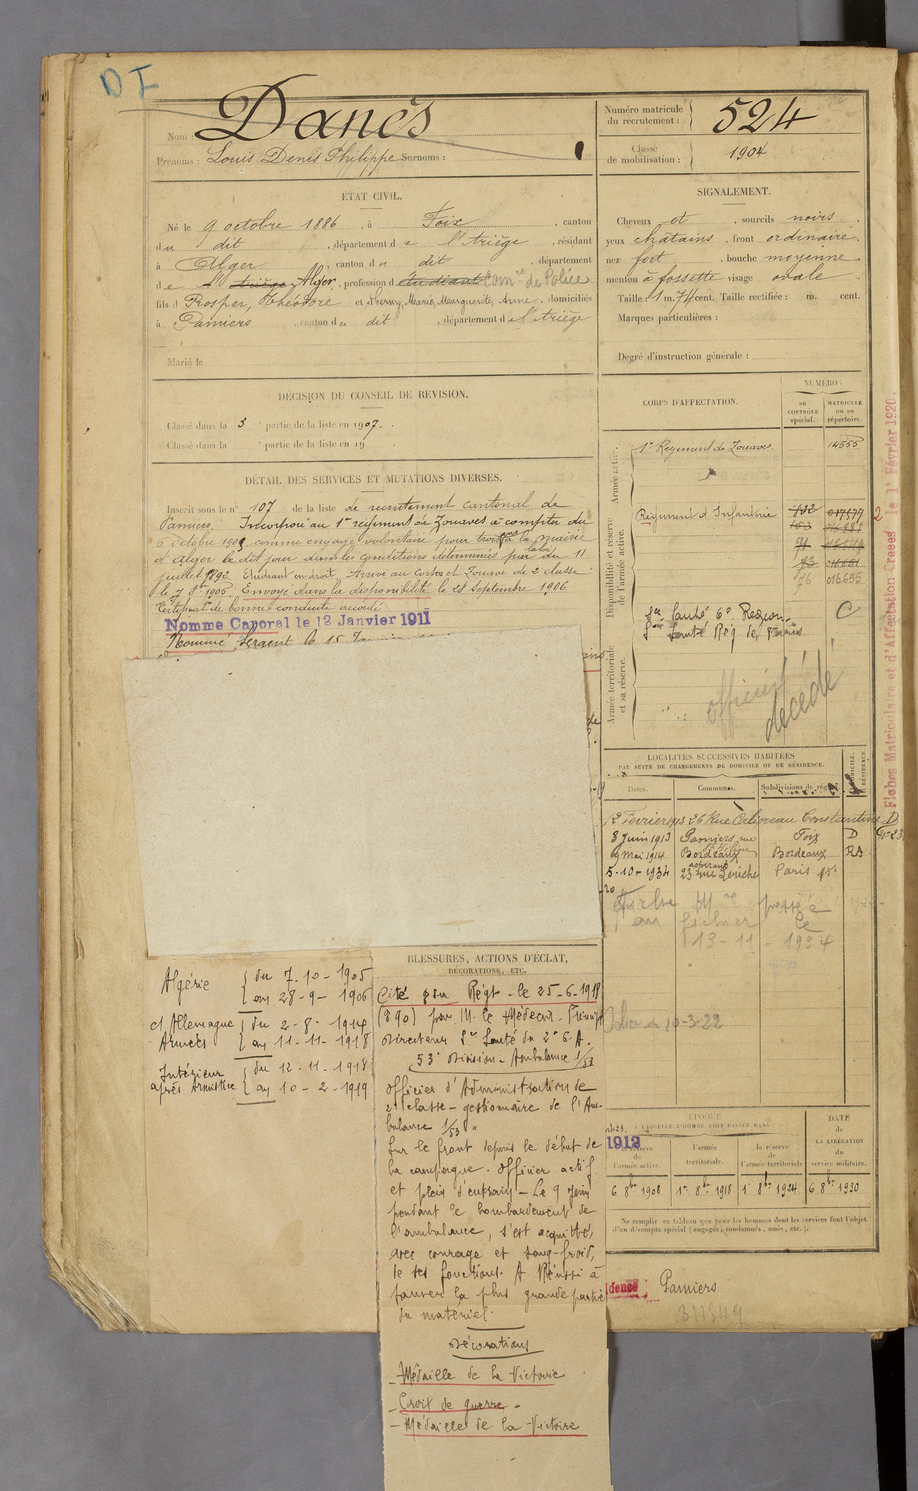 D I
Nom : Danès
Prénoms : Louis Denis Philippe Surnoms :
Numéro matricule du recrutement : 524
Classe de mobilisation : 1904
ETAT CIVIL.
Né le 9 octobre 1886, à Foix, canton
du dit, département de l'Ariège, résidant
à Alger, canton du dit, département
de Alger, profession d étudiant Com re de Police
fils d Prosper, Théodore et d Herny, Marie, Marguerite, Anne, domiciliés
à Pamiers, canton du dit, département de l'Ariège
Marié le
SIGNALEMENT.
Cheveux et, sourcils noirs
yeux châtains, front ordinaire
nez fort, bouche moyenne
menton à fossette visage ovale
Taille : 1 m. 74 cent. Taille rectifiée : m. cent.
Marques particulières :
Degré d'instruction générale :
DÉCISION DU CONSEIL DE REVISION.
Classé dans la 3e partie de la liste en 1907.
Classé dans la partie de la liste en 19
DÉTAIL DES SERVICES ET MUTATIONS DIVERSES.
Inscrit sous le n° 107 de la liste de recrutement cantonal de
Pamiers. Incorporé au 1er régiment de Zouaves à compter du
6 octobre 1905 comme engagé volontaire pour trois ans à la mairie
d'Alger le dit jour dans les conditions déterminées par la loi du 11
juillet 1892 Etudiant en droit. Arrivé au corps et Zouave de 2e classe
le 7 8bre 1905. Envoyé dans la disponibilité le 28 Septembre 1906
Certificat de bonne conduite accordé
Nommé Caporal le 12 Janvier 1911
Nommé Sergent le 15
CORPS D'AFFECTATION.
NUMÉRO
AU CONTRÔLE spécial.
MATRICULE ou au répertoire.
Armée active.
1er Régiment de Zouaves. 14555
Disponibilité et réserve de l'armée active.
Régiment d'Infanterie
76 016655
Son Santé 6e Région C
Son Santé Rég de Paris
Armée territoriale et sa réserve.
officier
décédé
Fiches Matriculaire et d'Affectation Créées le 1er Février 1920.
LOCALITÉS SUCCESSIVES HABITÉES
PAR SUITE DE CHANGEMENTS DE DOMICILE OU DE RÉSIDENCE.
Dates. Communes. Subdivisions de région. DOMICILE. RÉSIDENCE.
2 Février 1913 26 Rue Constantine D
8 Juin 1913 Pamiers rue Foix D
9 Mai 1914 Bordeaux Bordeaux RS
5-10-1934 23 rue Leriche Paris 15e
Fiche passée
au fichier le
13-11-1934
10-3-22
EPOQUE
A LAQUELLE L'HOMME DOIT PASSER DANS
DATE de LA LIBÉRATION du service militaire.
1912
l'armée active.
l'armée territoriale.
la réserve de l'armée territoriale
6 8bre 1908 1er 8bre 1918 1er 8bre 1924 6 8bre 1930
Ne remplir ce tableau que pour les hommes dont les services font l'objet
d'un décompte spécial (engagés, condamnés, omis, etc.).
Pamiers
Algérie { du 7-10-1905
au 28-9-1906
ct Allemagne { du 2-8-1914
Armées au 11-11-1918
Intérieur { du 12-11-1918
après Armistice au 10-2-1919
BLESSURES, ACTIONS D'ÉCLAT,
DÉCORATIONS, ETC.
Cité par Régt - le 25-6-1918
(890) par M. le Médecin - Principal
Directeur Sce Santé du 2e C.A.
53e Division - Ambulance 1/53
officier d'Administration de
2e classe - gestionnaire de l'Am-
bulance 1/53 "
Sur le front depuis le début de
la campagne. Officier actif
et plein d'entrain - Le 9 Juin
pendant le bombardement de
l'ambulance, s'est acquitté,
avec courage et sang-froid,
de ses fonctions. A Réussi à
sauver la plus grande partie
du matériel.
Décorations
- Médaille de la Victoire
- Croix de guerre -
- Médaille de la Victoire